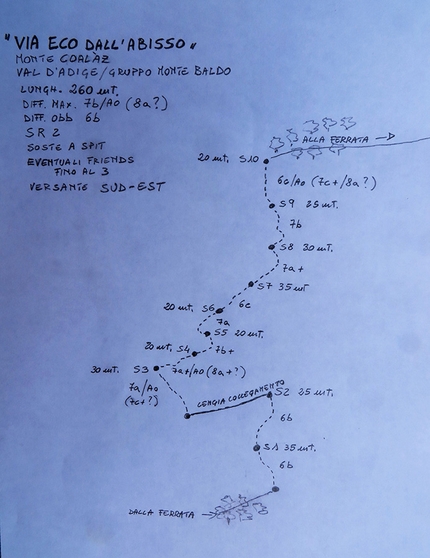 "VIA ECO DALL'ABISSO"
MONTE CORLAZ
VAL D'ADIGE/GRUPPO MONTE BALDO
LUNGH. 260 mt.
DIFF. MAX. 7b/A0 (8a?)
DIFF. obb 6b
SR 2
SOSTE A SPIT
EVENTUALI FRIENDS
FINO AL 3
VERSANTE SUD-EST
ALLA FERRATA
20 mt. S10
6c/A0 (7c+/8a?)
S9 25 mt.
7b
S8 30 mt.
7a+
S7 35 mt
20 mt. S6 6c
7a
S5 20 mt.
20 mt. S4 7b+
30 mt. S3 7a+/A0 (8a+?)
7a/A0
(7c+?)
CENGIA COLLEGAMENTO
S2 25 mt.
6b
S1 35 mt.
6b
DALLA FERRATA